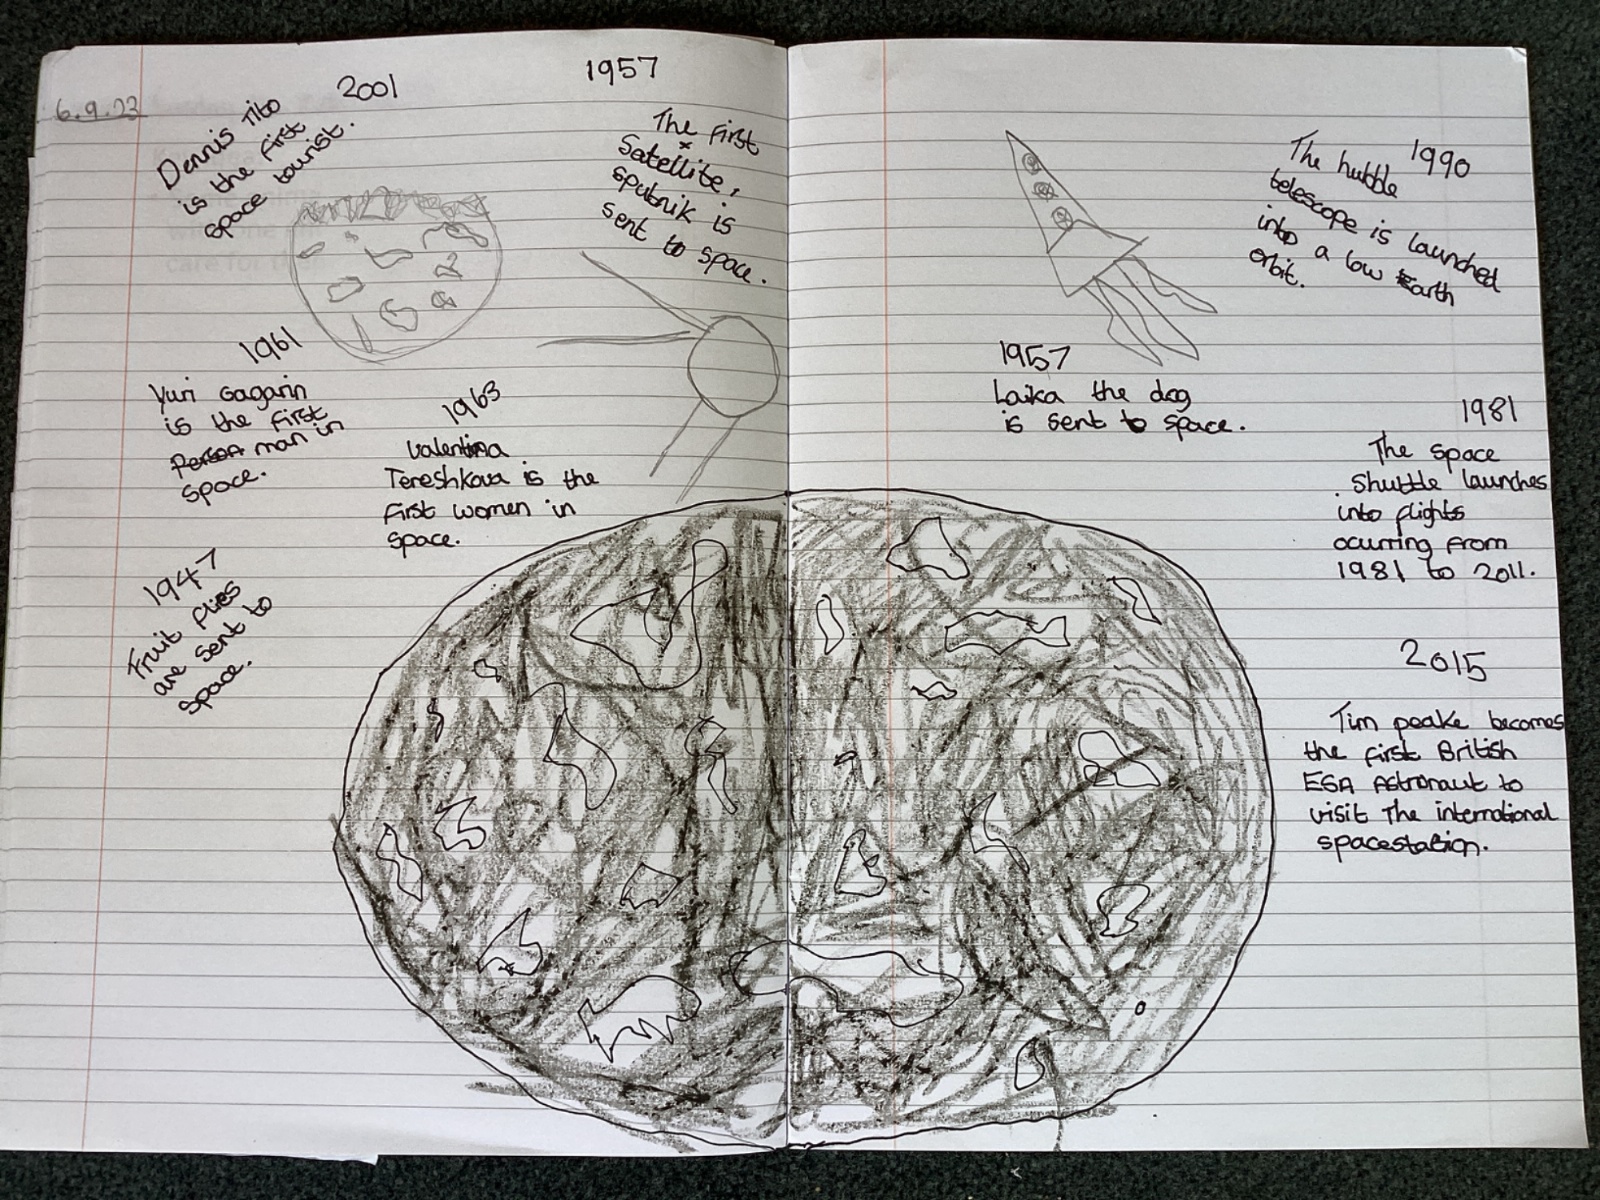 6.9.23
2001
Dennis Tito
is the first
space tourist.
1957
The first
Satellite,
sputnik is
sent to space.
1961
Yuri Gagarin
is the first
person man in
space.
1963
Valentina
Tereshkova is the
first women in
space.
1947
Fruit flies
are sent to
space.
1990
The hubble
telescope is launched
into a low Earth
orbit.
1957
Laika the dog
is sent to space.
1981
The space
Shuttle launches
into flights
ocurring from
1981 to 2011.
2015
Tim peake becomes
the first British
ESA Astronaut to
visit The international
spacestation.